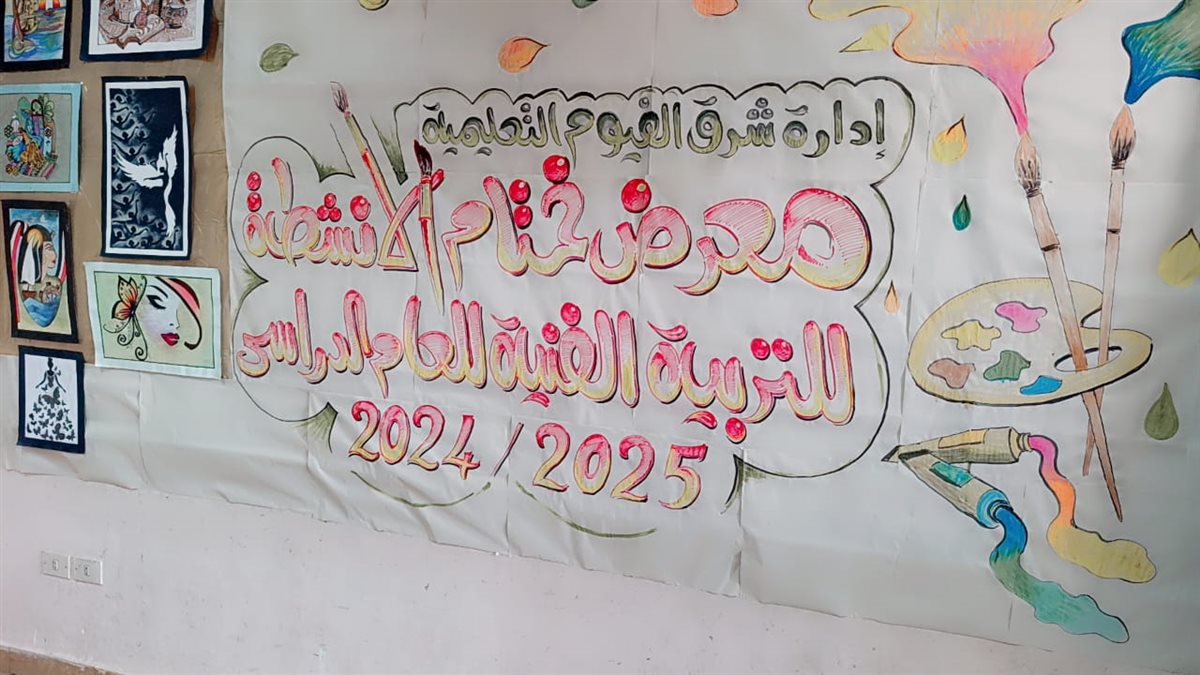 إدارة شرق الفيوم التعليمية
معرض ختام الانشطة
للتربية الفنية للعام الدراسى
2024 / 2025